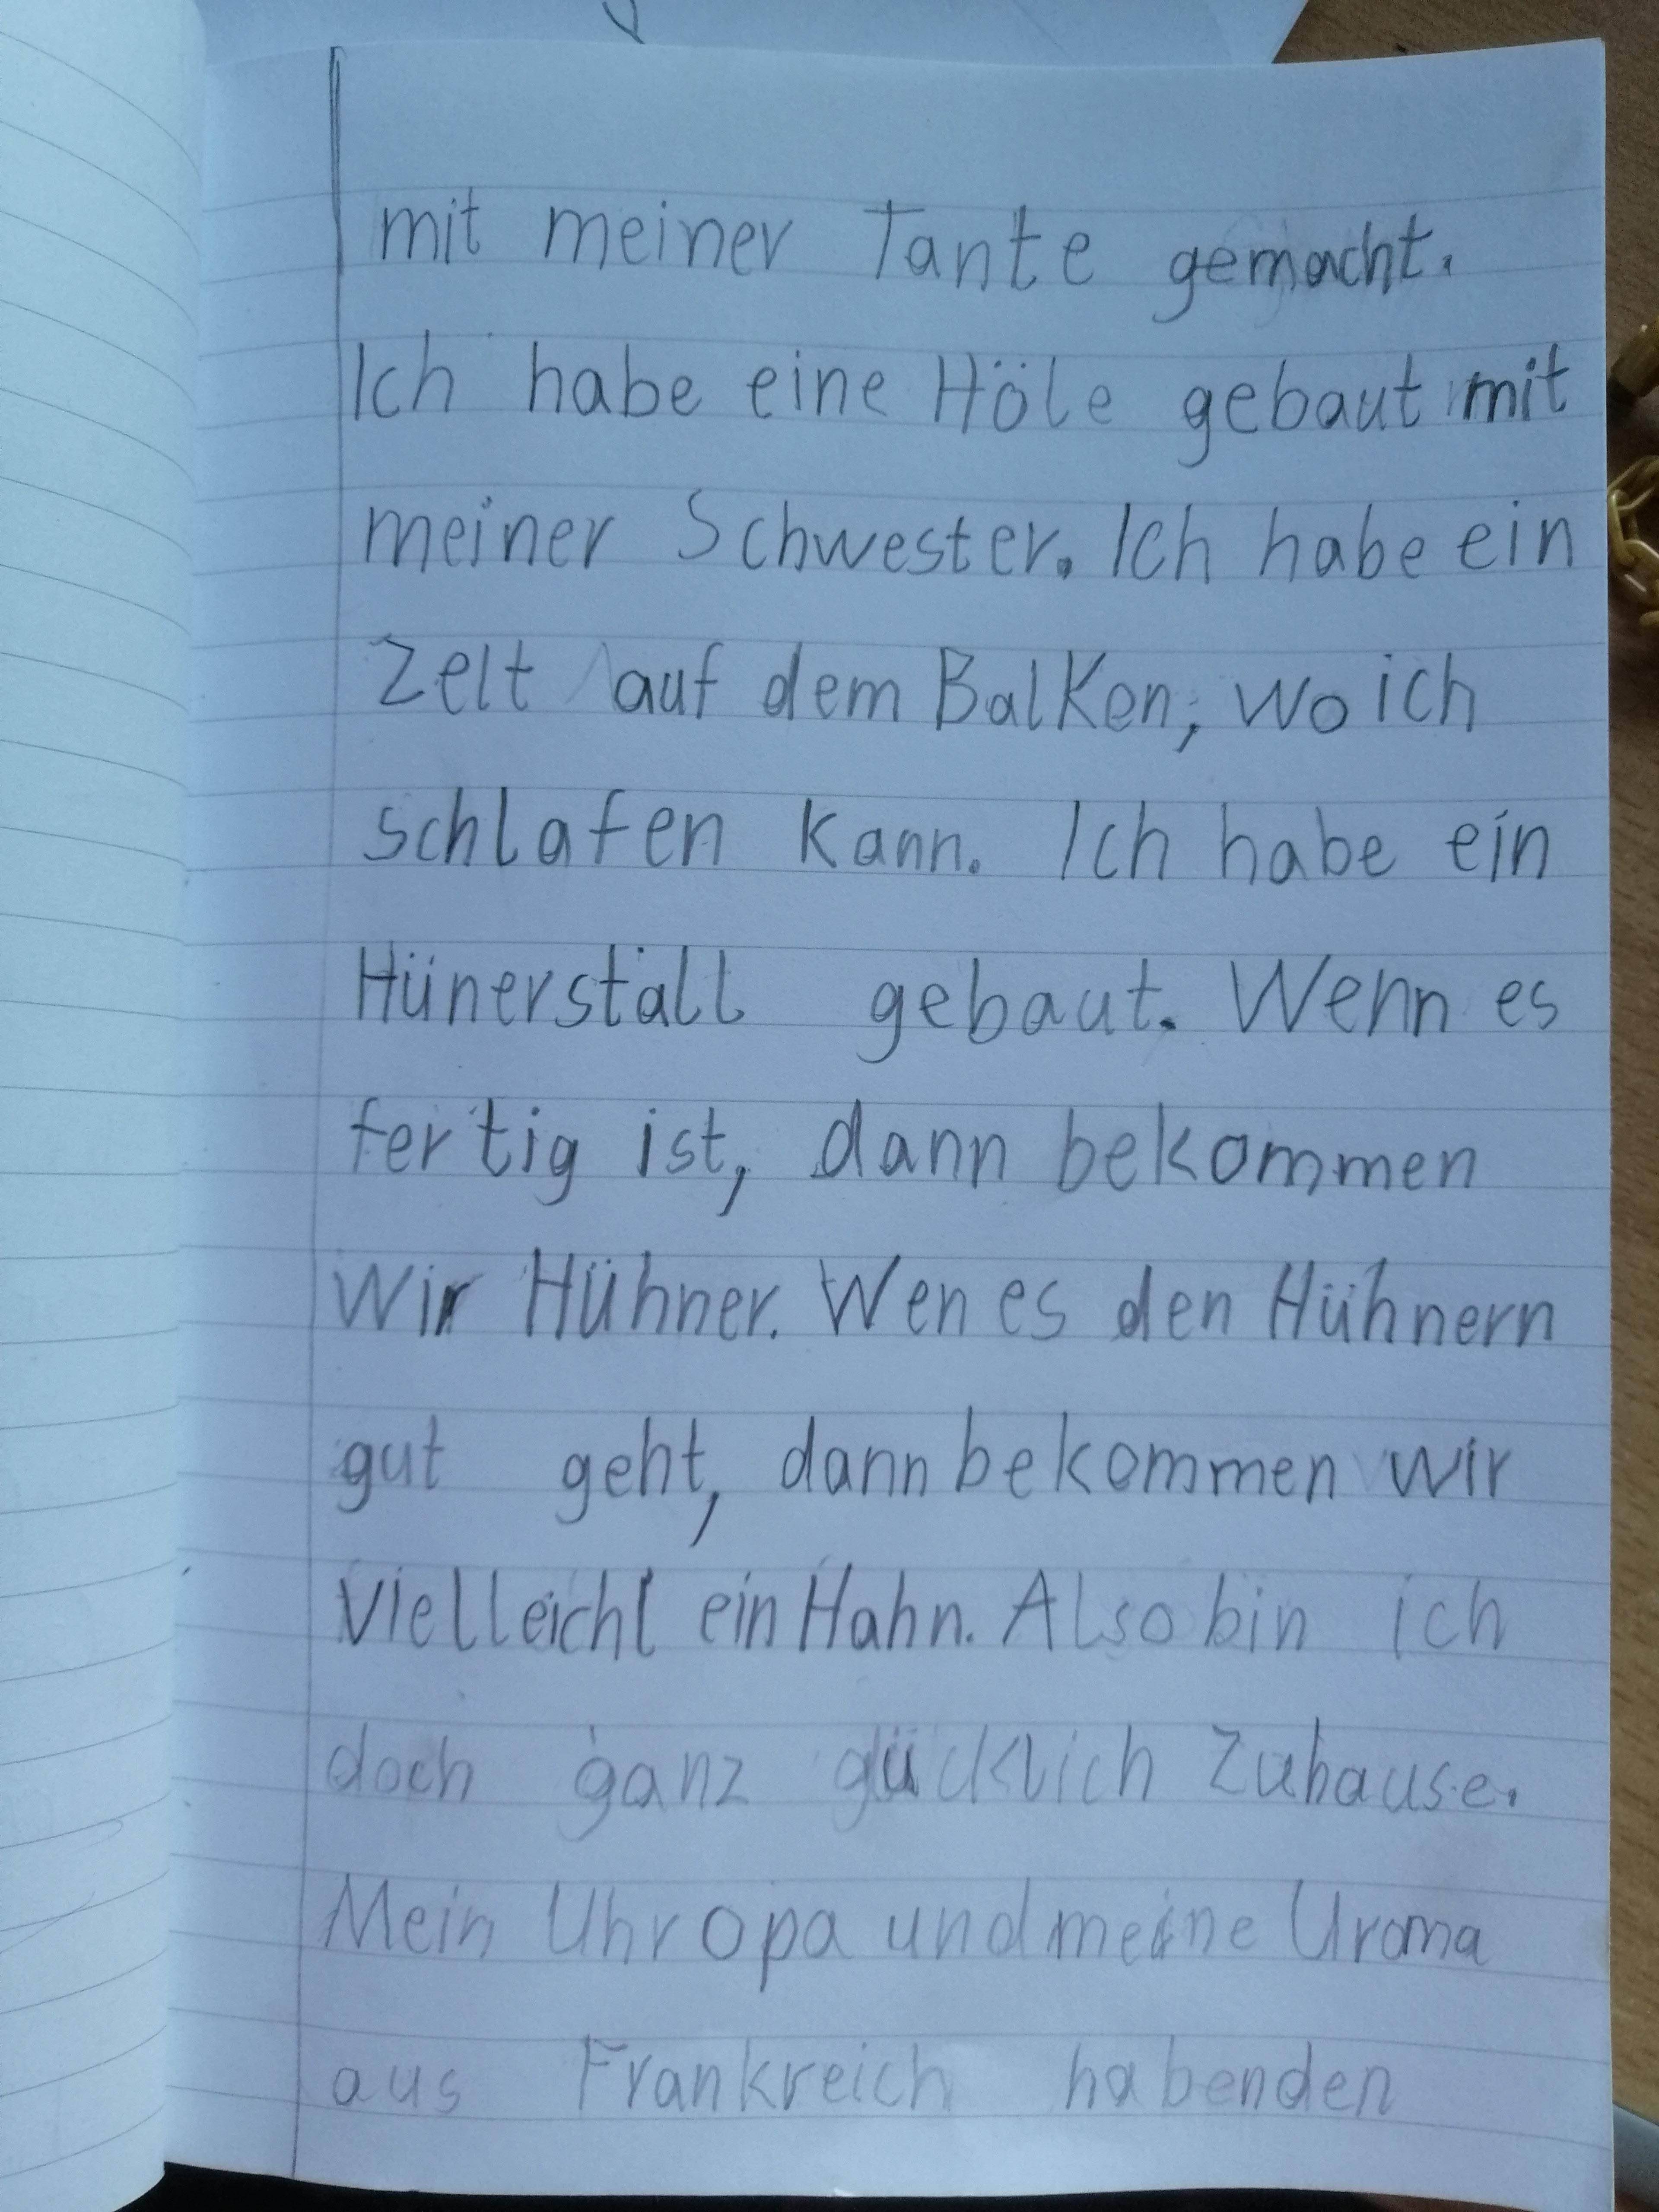 mit meiner Tante gemacht.
Ich habe eine Höle gebaut mit
meiner Schwester. Ich habe ein
Zelt auf dem Balken, wo ich
schlafen kann. Ich habe ein
Hünerstall gebaut. Wenn es
fertig ist, dann bekommen
wir Hühner. Wen es den Hühnern
gut geht, dann bekommen wir
Vielleicht ein Hahn. Also bin ich
doch ganz glücklich Zuhause.
Mein Uhropa und meine Uroma
aus Frankreich haben den